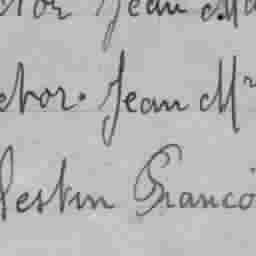 ctor Jean Ma
ctor. Jean Mr
lestin Franco